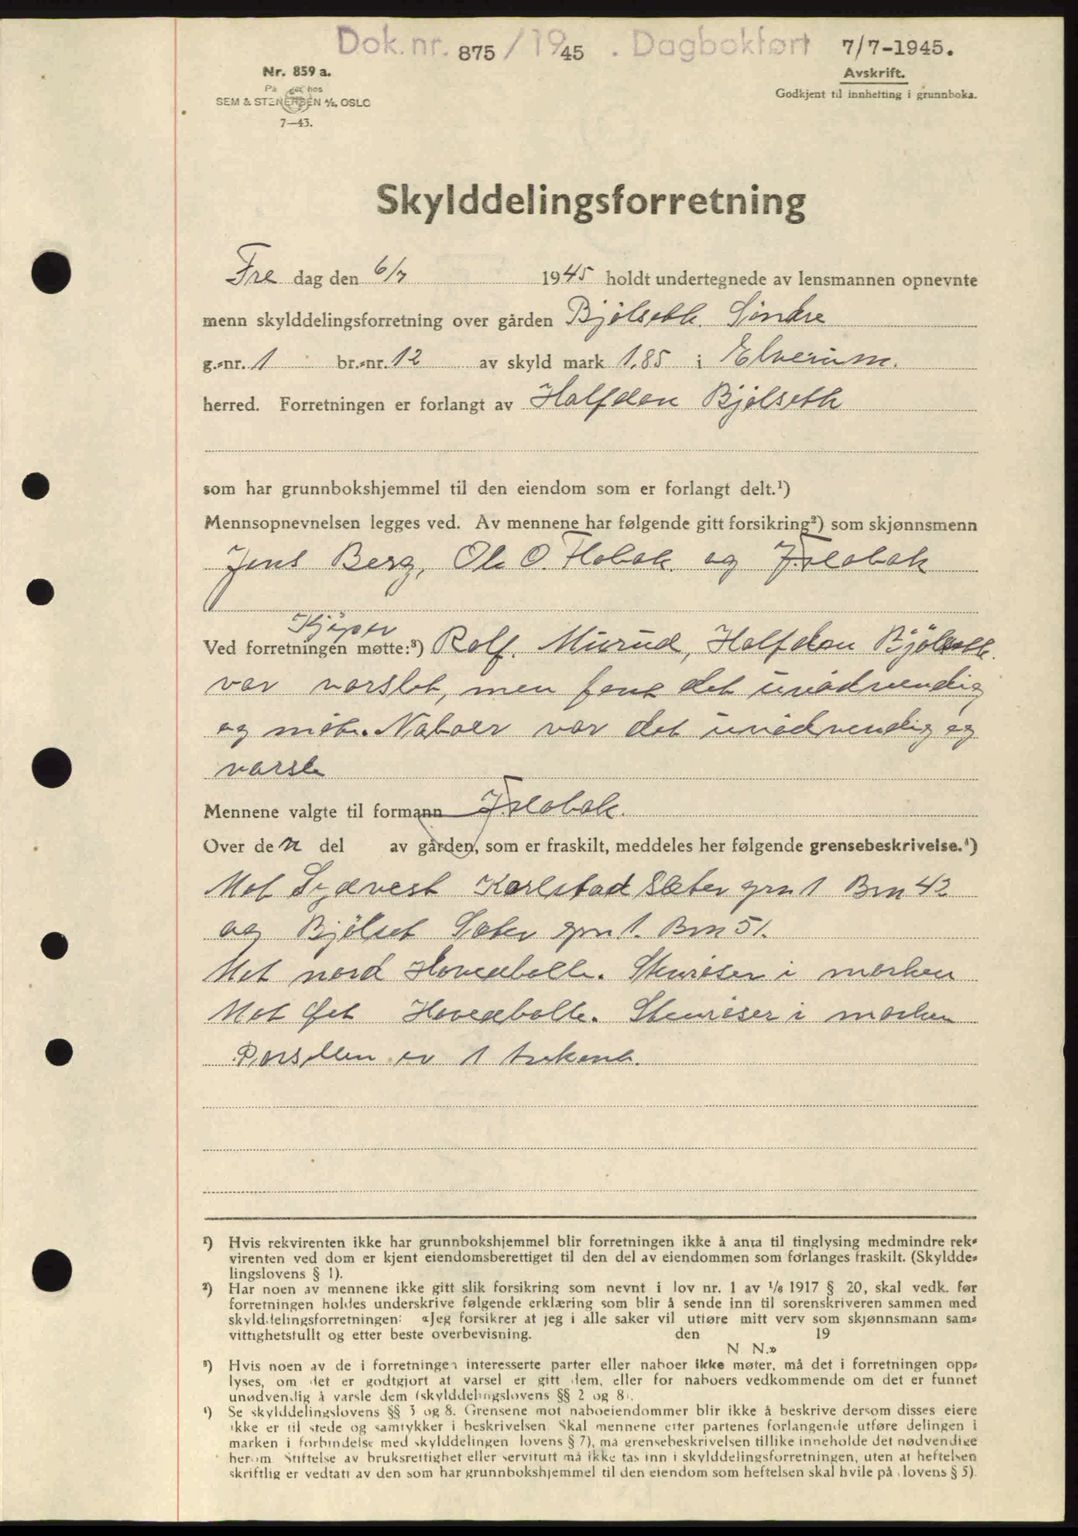 Dok. nr. 875 / 1945 . Dagbokført 7/7-1945.
Nr. 859 a.
Avskrift.
SEM & STENERSEN A/S, OSLO
Godkjent til innhefting i grunnboka.
7—43.
Skylddelingsforretning
Fre dag den 6/7 1945 holdt undertegnede av lensmannen opnevnte
menn skylddelingsforretning over gården Bjølseth Søndre
g.-nr. 1 br.-nr. 12 av skyld mark 1,85 i Elverum.
herred. Forretningen er forlangt av Halfdan Bjølseth
som har grunnbokshjemmel til den eiendom som er forlangt delt.¹)
Mennsopnevnelsen legges ved. Av mennene har følgende gitt forsikring²) som skjønnsmenn
Jens Berg, Ole O. Flobak og J. Flobak
Kjøper
Ved forretningen møtte:³) Rolf. Murud, Halfdan Bjølseth.
var varslet, men fant det unødvendig
og møte. Naboer var det unødvendig og
varsle
Mennene valgte til formann J. Flobak.
Over den del av gården, som er fraskilt, meddeles her følgende grensebeskrivelse.⁴)
Mot Sydvest Karlstad Sæter grn 1 Brn 42
og Bjølset Sæter grn 1. Brn 51.
Mot nord Hovedbølle. Stenrøser i marken
Mot Øst Hovedbølle. Stenrøser i marken
Parsellen er 1 trekant.
¹) Hvis rekvirenten ikke har grunnbokshjemmel blir forretningen ikke å anta til tinglysing medmindre rek-
virenten ved dom er kjent eiendomsberettiget til den del av eiendommen som forlanges fraskilt. (Skyldde-
lingslovens § 1).
²) Har noen av mennene ikke gitt slik forsikring som nevnt i lov nr. 1 av 1/6 1917 § 20, skal vedk. før
forretningen holdes underskrive følgende erklæring som blir å sende inn til sorenskriveren sammen med
skylddelingsforretningen: «Jeg forsikrer at jeg i alle saker vil utføre mitt verv som skjønnsmann sam-
vittighetsfullt og etter beste overbevisning. den 19
N. N.»
³) Hvis noen av de i forretningen interesserte parter eller naboer ikke møter, må det i forretningen opp-
lyses, om det er godtgjort at varsel er gitt dem, eller for naboers vedkommende om det er funnet
unødvendig å varsle dem (skylddelingslovens §§ 2 og 8).
⁴) Se skylddelingslovens §§ 3 og 8. Grensene mot naboeiendommer blir ikke å beskrive dersom disses eiere
ikke er til stede og samtykker i beskrivelsen. Skal mennene etter partenes forlangende utføre delingen i
marken i forbindelse med skylddelingen (lovens § 7), må grensebeskrivelsen tillike inneholde det nødvendige
herom. Stiftelse av bruksrettighet eller servitutt må ikke tas inn i skylddelingsforretningen, uten at heftelsen
skriftlig er vedtatt av den som har grunnbokshjemmel til den eiendom som heftelsen skal hvile på (lovens § 5).